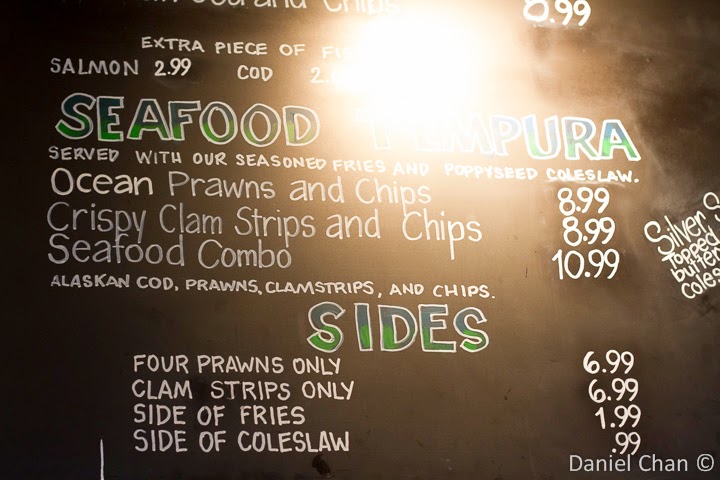 and Chips 8.99
EXTRA PIECE OF
SALMON 2.99 COD
SEAFOOD TEMPURA
SERVED WITH OUR SEASONED FRIES AND POPPYSEED COLESLAW.
Ocean Prawns and Chips 8.99
Crispy Clam Strips and Chips 8.99
Seafood Combo 10.99
ALASKAN COD, PRAWNS, CLAMSTRIPS, AND CHIPS.
Silver
Topped
SIDES
FOUR PRAWNS ONLY 6.99
CLAM STRIPS ONLY 6.99
SIDE OF FRIES 1.99
SIDE OF COLESLAW .99
Daniel Chan ©